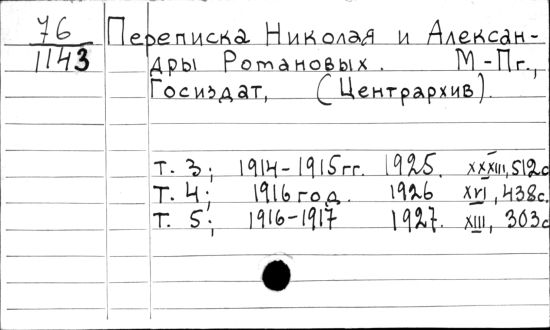 76 Переписка Николая и Алексан-
1143 дры Романовых. М-Пг.,
Госиздат, (Центрархив).
Т. 3; 1914-1915 гг. 1925. XXXIII, 512с
Т. 4; 1916 год. 1926 XVI, 438с.
Т. 5; 1916-1917 1927. XIII, 303с